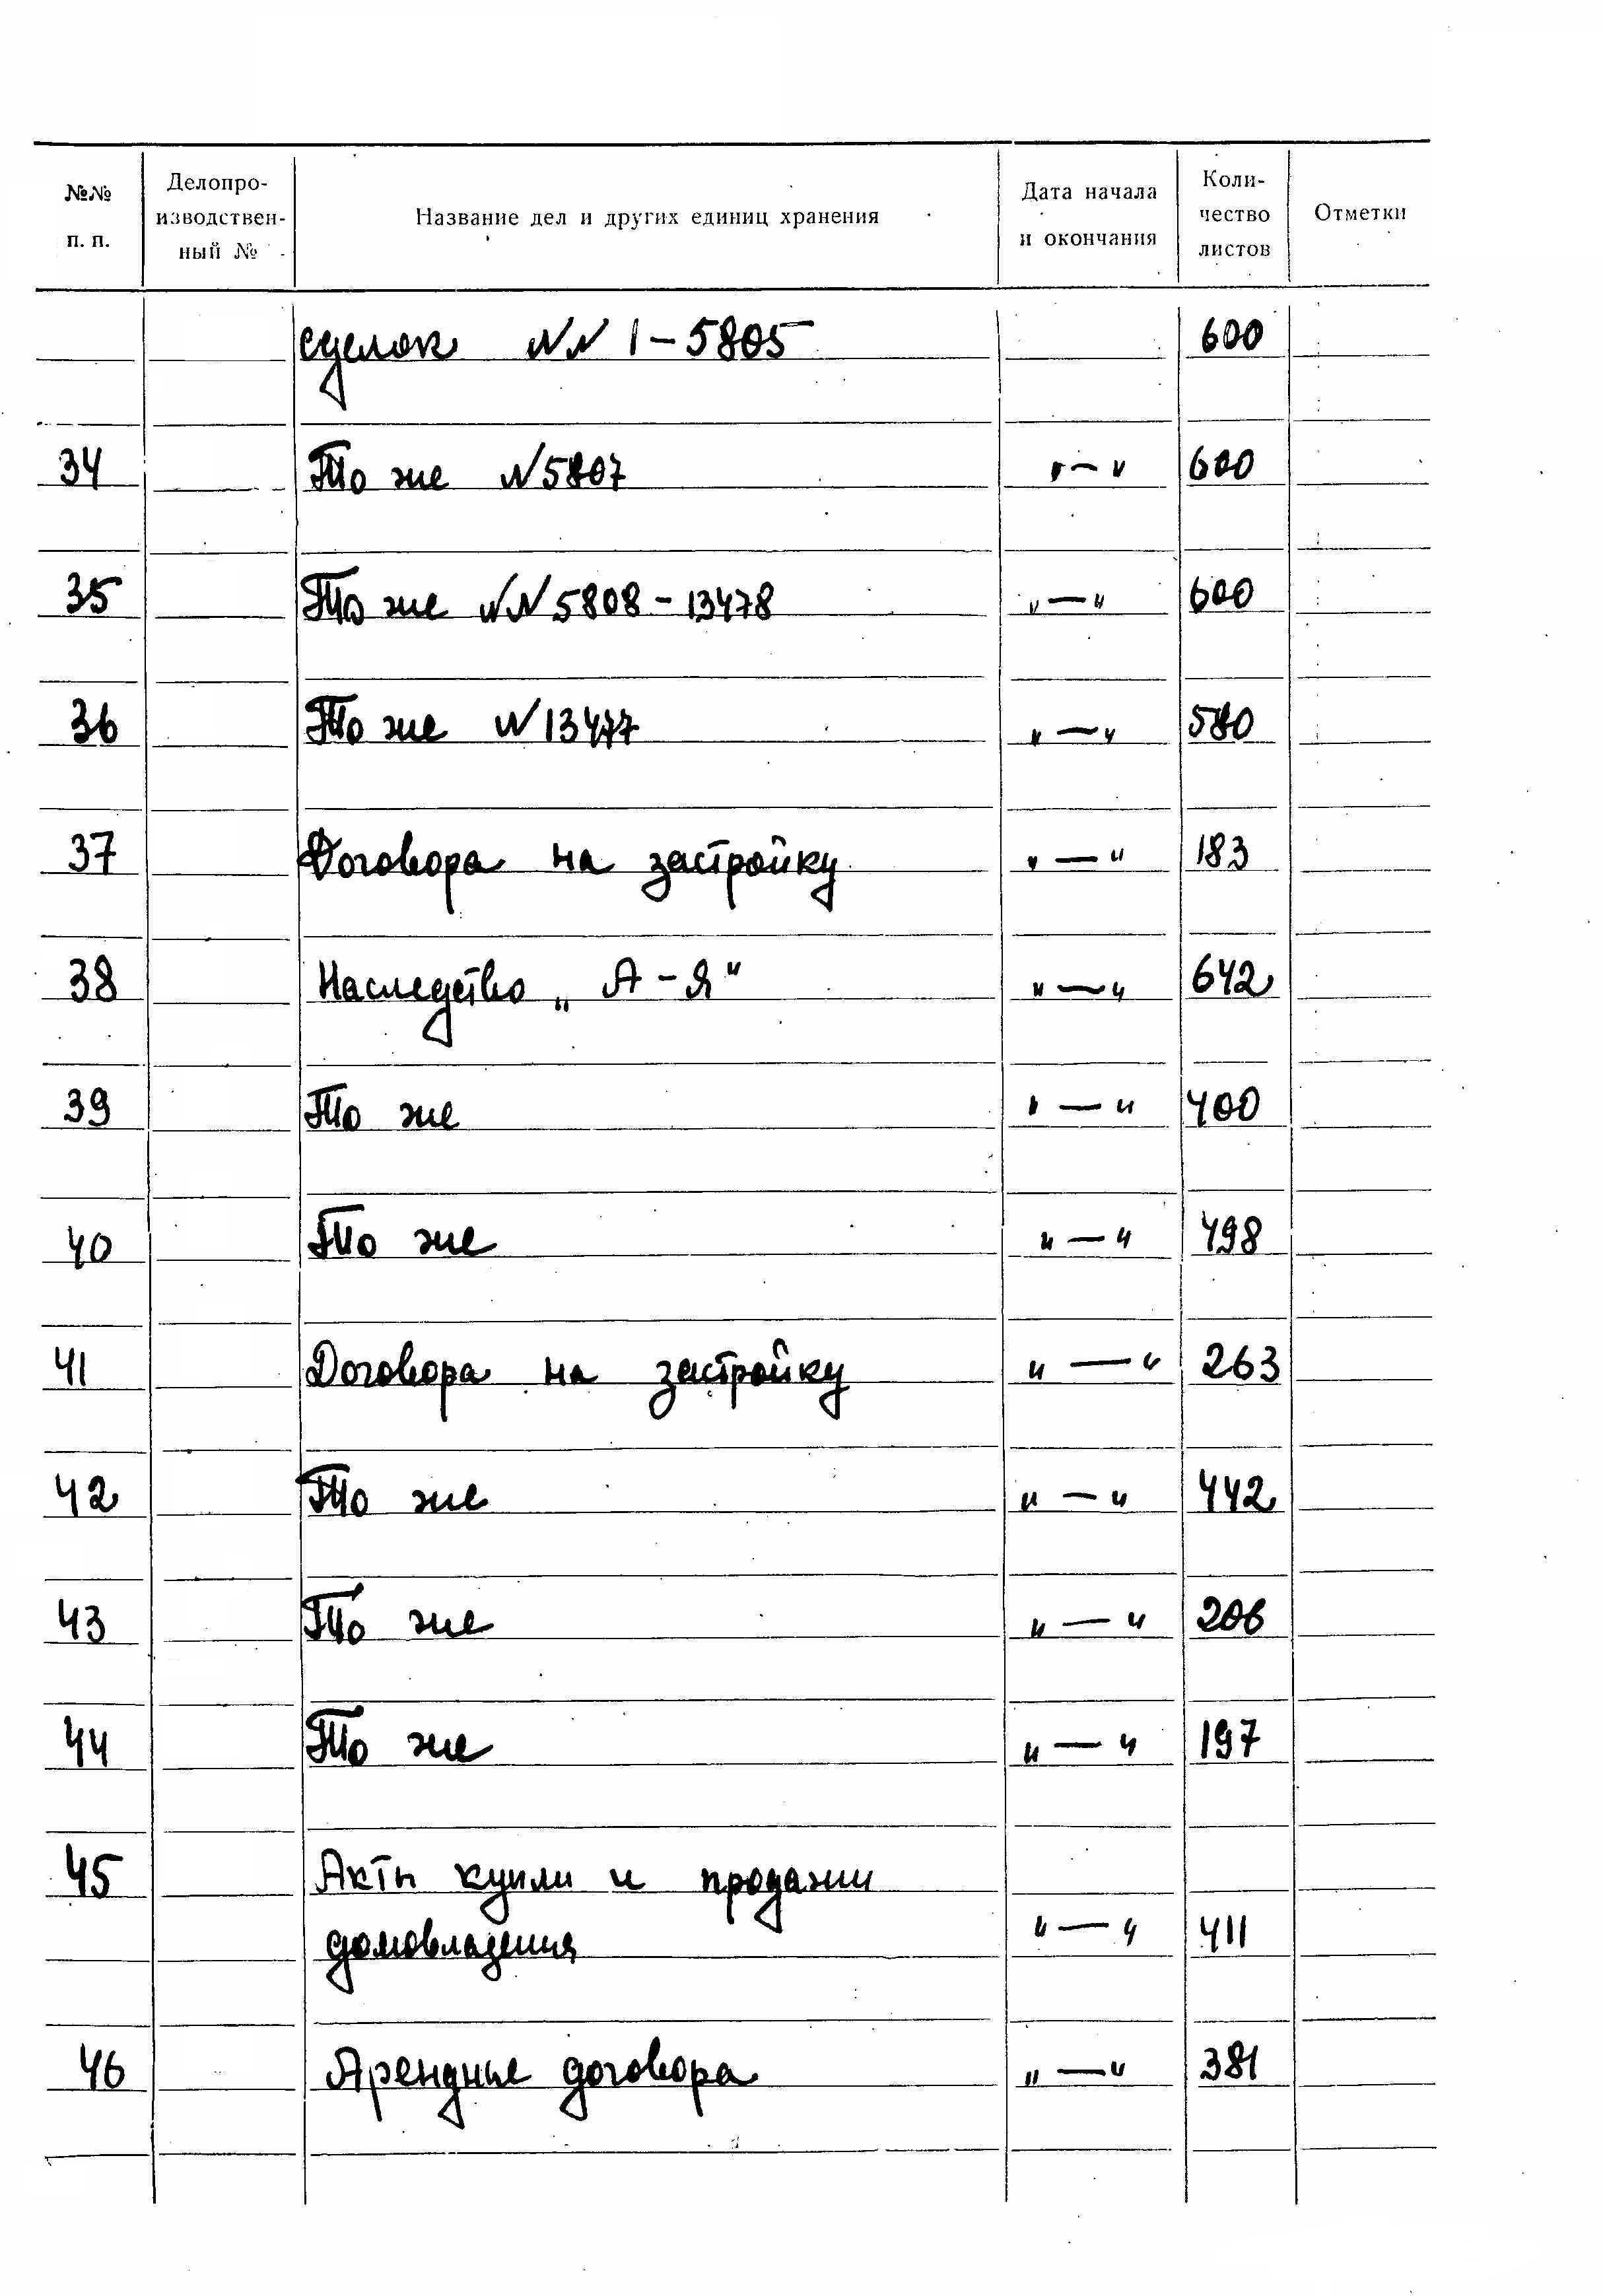 №№ п. п.
Делопро-
изводствен-
ный №
Название дел и других единиц хранения
Дата начала
и окончания
Коли-
чество
листов
Отметки
сделок NN 1-5805 600
34 То же N 5807 "—" 600
35 То же NN 5808-13478 "—" 600
36 То же N 13477 "—" 580
37 Договора на застройку "—" 183
38 Наследство „А-Я" "—" 642
39 То же "—" 400
40 То же "—" 498
41 Договора на застройку "—" 263
42 То же "—" 442
43 То же "—" 206
44 То же "—" 197
45 Акты купли и продажи
домовладения "—" 411
46 Арендные договора "—" 381